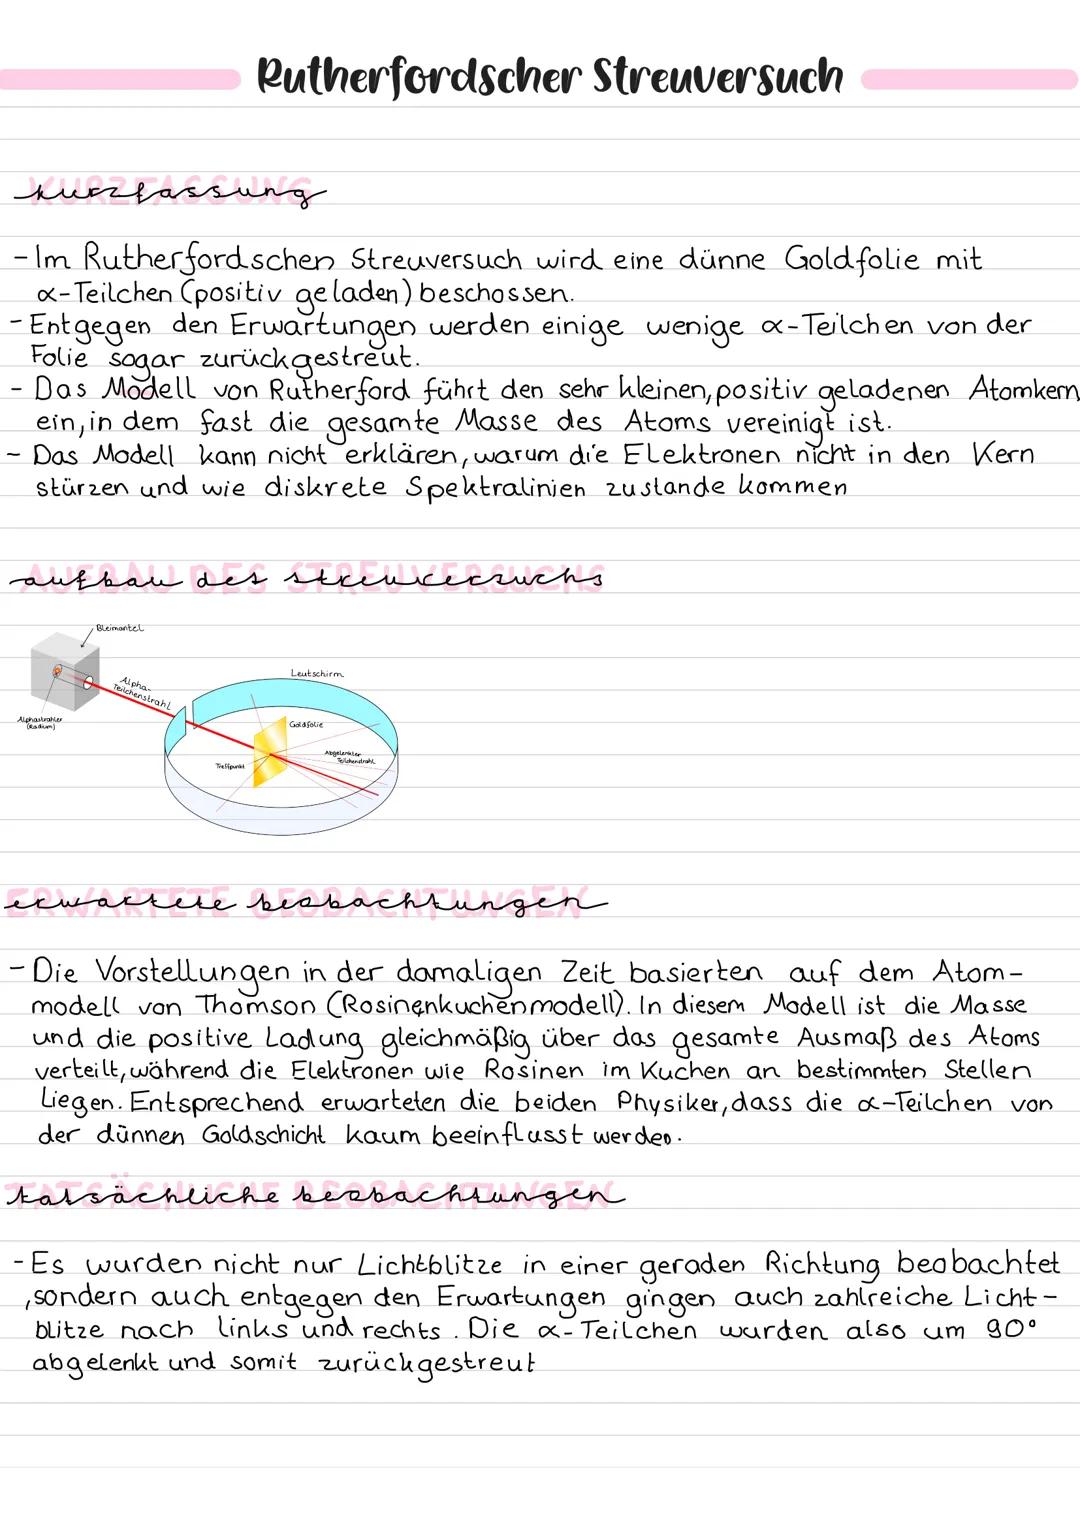 Rutherfordscher Streuversuch
kurzfassung
KURZFASSUNG
- Im Rutherfordschen Streuversuch wird eine dünne Goldfolie mit
α-Teilchen (positiv geladen) beschossen.
- Entgegen den Erwartungen werden einige wenige α-Teilchen von der
Folie sogar zurückgestreut.
- Das Modell von Rutherford führt den sehr kleinen, positiv geladenen Atomkern
ein, in dem fast die gesamte Masse des Atoms vereinigt ist.
- Das Modell kann nicht erklären, warum die Elektronen nicht in den Kern
stürzen und wie diskrete Spektralinien zustande kommen
aufbau des streuversuchs
AUFBAU DES STREUVERSUCHS
Bleimantel
Leutschirm
Alpha-
Teilchenstrahl
Alphastrahler
(Radium)
Goldfolie
Abgelenkter
Teilchendrahl
Treffpunkt
erwartete beobachtungen
ERWARTETE BEOBACHTUNGEN
- Die Vorstellungen in der damaligen Zeit basierten auf dem Atom-
modell von Thomson (Rosinenkuchenmodell). In diesem Modell ist die Masse
und die positive Ladung gleichmäßig über das gesamte Ausmaß des Atoms
verteilt, während die Elektronen wie Rosinen im Kuchen an bestimmten Stellen
Liegen. Entsprechend erwarteten die beiden Physiker, dass die α-Teilchen von
der dünnen Goldschicht kaum beeinflusst werden.
tatsächliche beobachtungen
TATSÄCHLICHE BEOBACHTUNGEN
- Es wurden nicht nur Lichtblitze in einer geraden Richtung beobachtet
, sondern auch entgegen den Erwartungen gingen auch zahlreiche Licht-
blitze nach links und rechts. Die α-Teilchen wurden also um 90°
abgelenkt und somit zurückgestreut